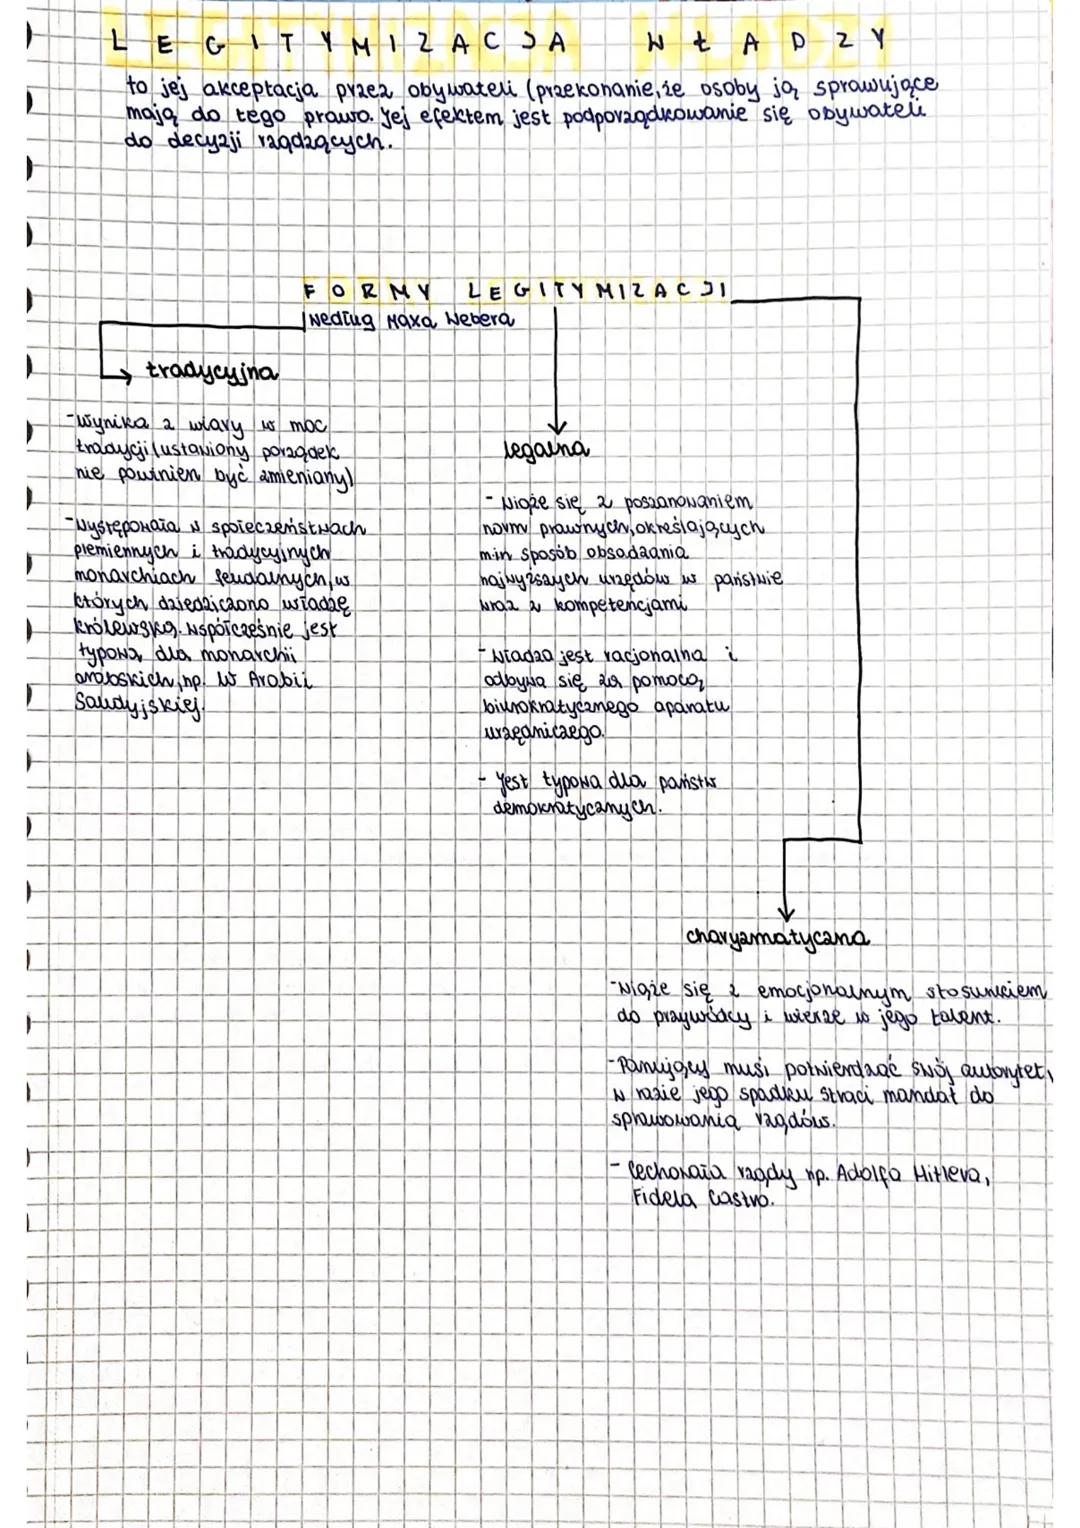 LEGITYMIZACJA WŁADZY
to jej akceptacja przez obywateli (przekonanie, że osoby ją sprawujące
mają do tego prawo. Jej efektem jest podporządkowanie się obywateli
do decyzji rządzących.
FORMY LEGITYMIZACJI
według Maxa Webera
tradycyjna
-wynika z wiary w moc
tradycji (ustawiony porządek
nie powinien być zmieniany)
-występowała w społeczeństwach
plemiennych i tradycyjnych
monarchiach feudalnych, w
których dziedziczono władzę
królewską. współcześnie jest
typowa dla monarchii
arabskich, np. w Arabii
Saudyjskiej.
legalna
- wiąże się z poszanowaniem
norm prawnych, określających
min sposób obsadzania
najwyższych urzędów w państwie
wraz z kompetencjami
- władza jest racjonalna i
odbywa się za pomocą
biurokratycznego aparatu
urzędniczego.
- Jest typowa dla państw
demokratycznych.
charyzmatyczna
-wiąże się z emocjonalnym stosunkiem
do przywódcy i wierze w jego talent.
-Panujący musi potwierdzać swój autorytet,
w razie jego spadku straci mandat do
sprawowania rządów.
- Cechowała rządy np. Adolfa Hitlera,
Fidela Castro.